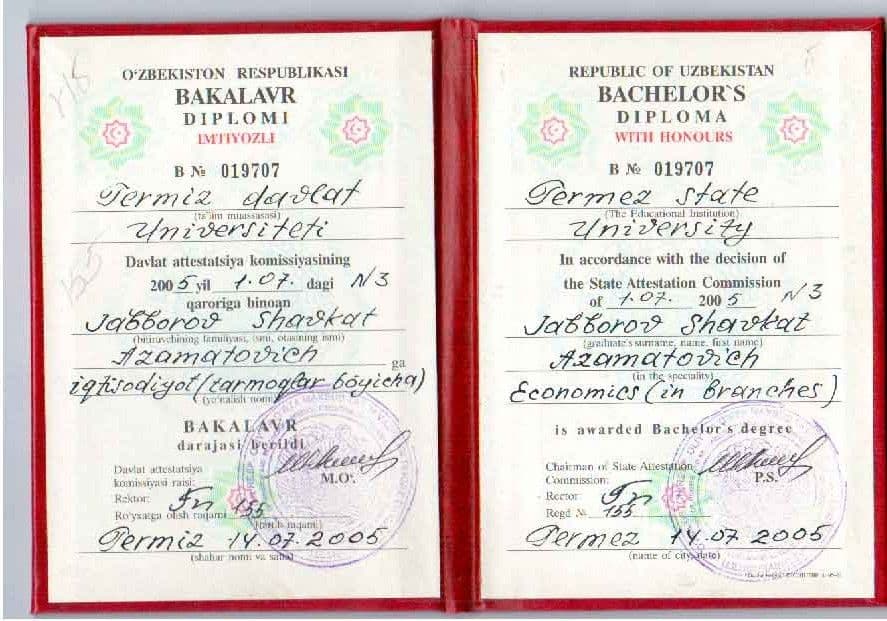 O‘ZBEKISTON RESPUBLIKASI
BAKALAVR
DIPLOMI
IMTIYOZLI
B № 019707
Termiz davlat
(ta'lim muassasasi)
Universiteti
Davlat attestatsiya komissiyasining
2005 yil 1.07. dagi N3
qaroriga binoan
Jabborov Shavkat
(bitiruvchining familiyasi, ismi, otasining ismi)
Azamatovich ga
iqtisodiyot (tarmoqlar bo'yicha)
(yo'nalish nomi)
BAKALAVR
darajasi berildi
Davlat attestatsiya
komissiyasi raisi:
M.O‘.
Rektor:
Ro'yxatga olish raqami 155
Termiz 14.07.2005
(shahar nomi va sana)
REPUBLIC OF UZBEKISTAN
BACHELOR`S
DIPLOMA
WITH HONOURS
B № 019707
Termez state
(The Educational Institution)
University
In accordance with the decision of
the State Attestation Commission
of 1.07. 2005 N3
Jabborov Shavkat
(graduate's surname, name, first name)
Azamatovich
(in the speciality)
Economics (in branches)
is awarded Bachelor's degree
Chairman of State Attestation
Commission:
P.S.
Rector:
Regd № 155
Termez 14.07.2005
(name of city, date)